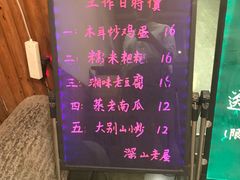 工作日特價
一:木耳炒鸡蛋 16
二:糯米粑粑 16
三:瑞味老豆腐 15
四:蒸老南瓜 12
五:大别山小炒 12
深山老屋